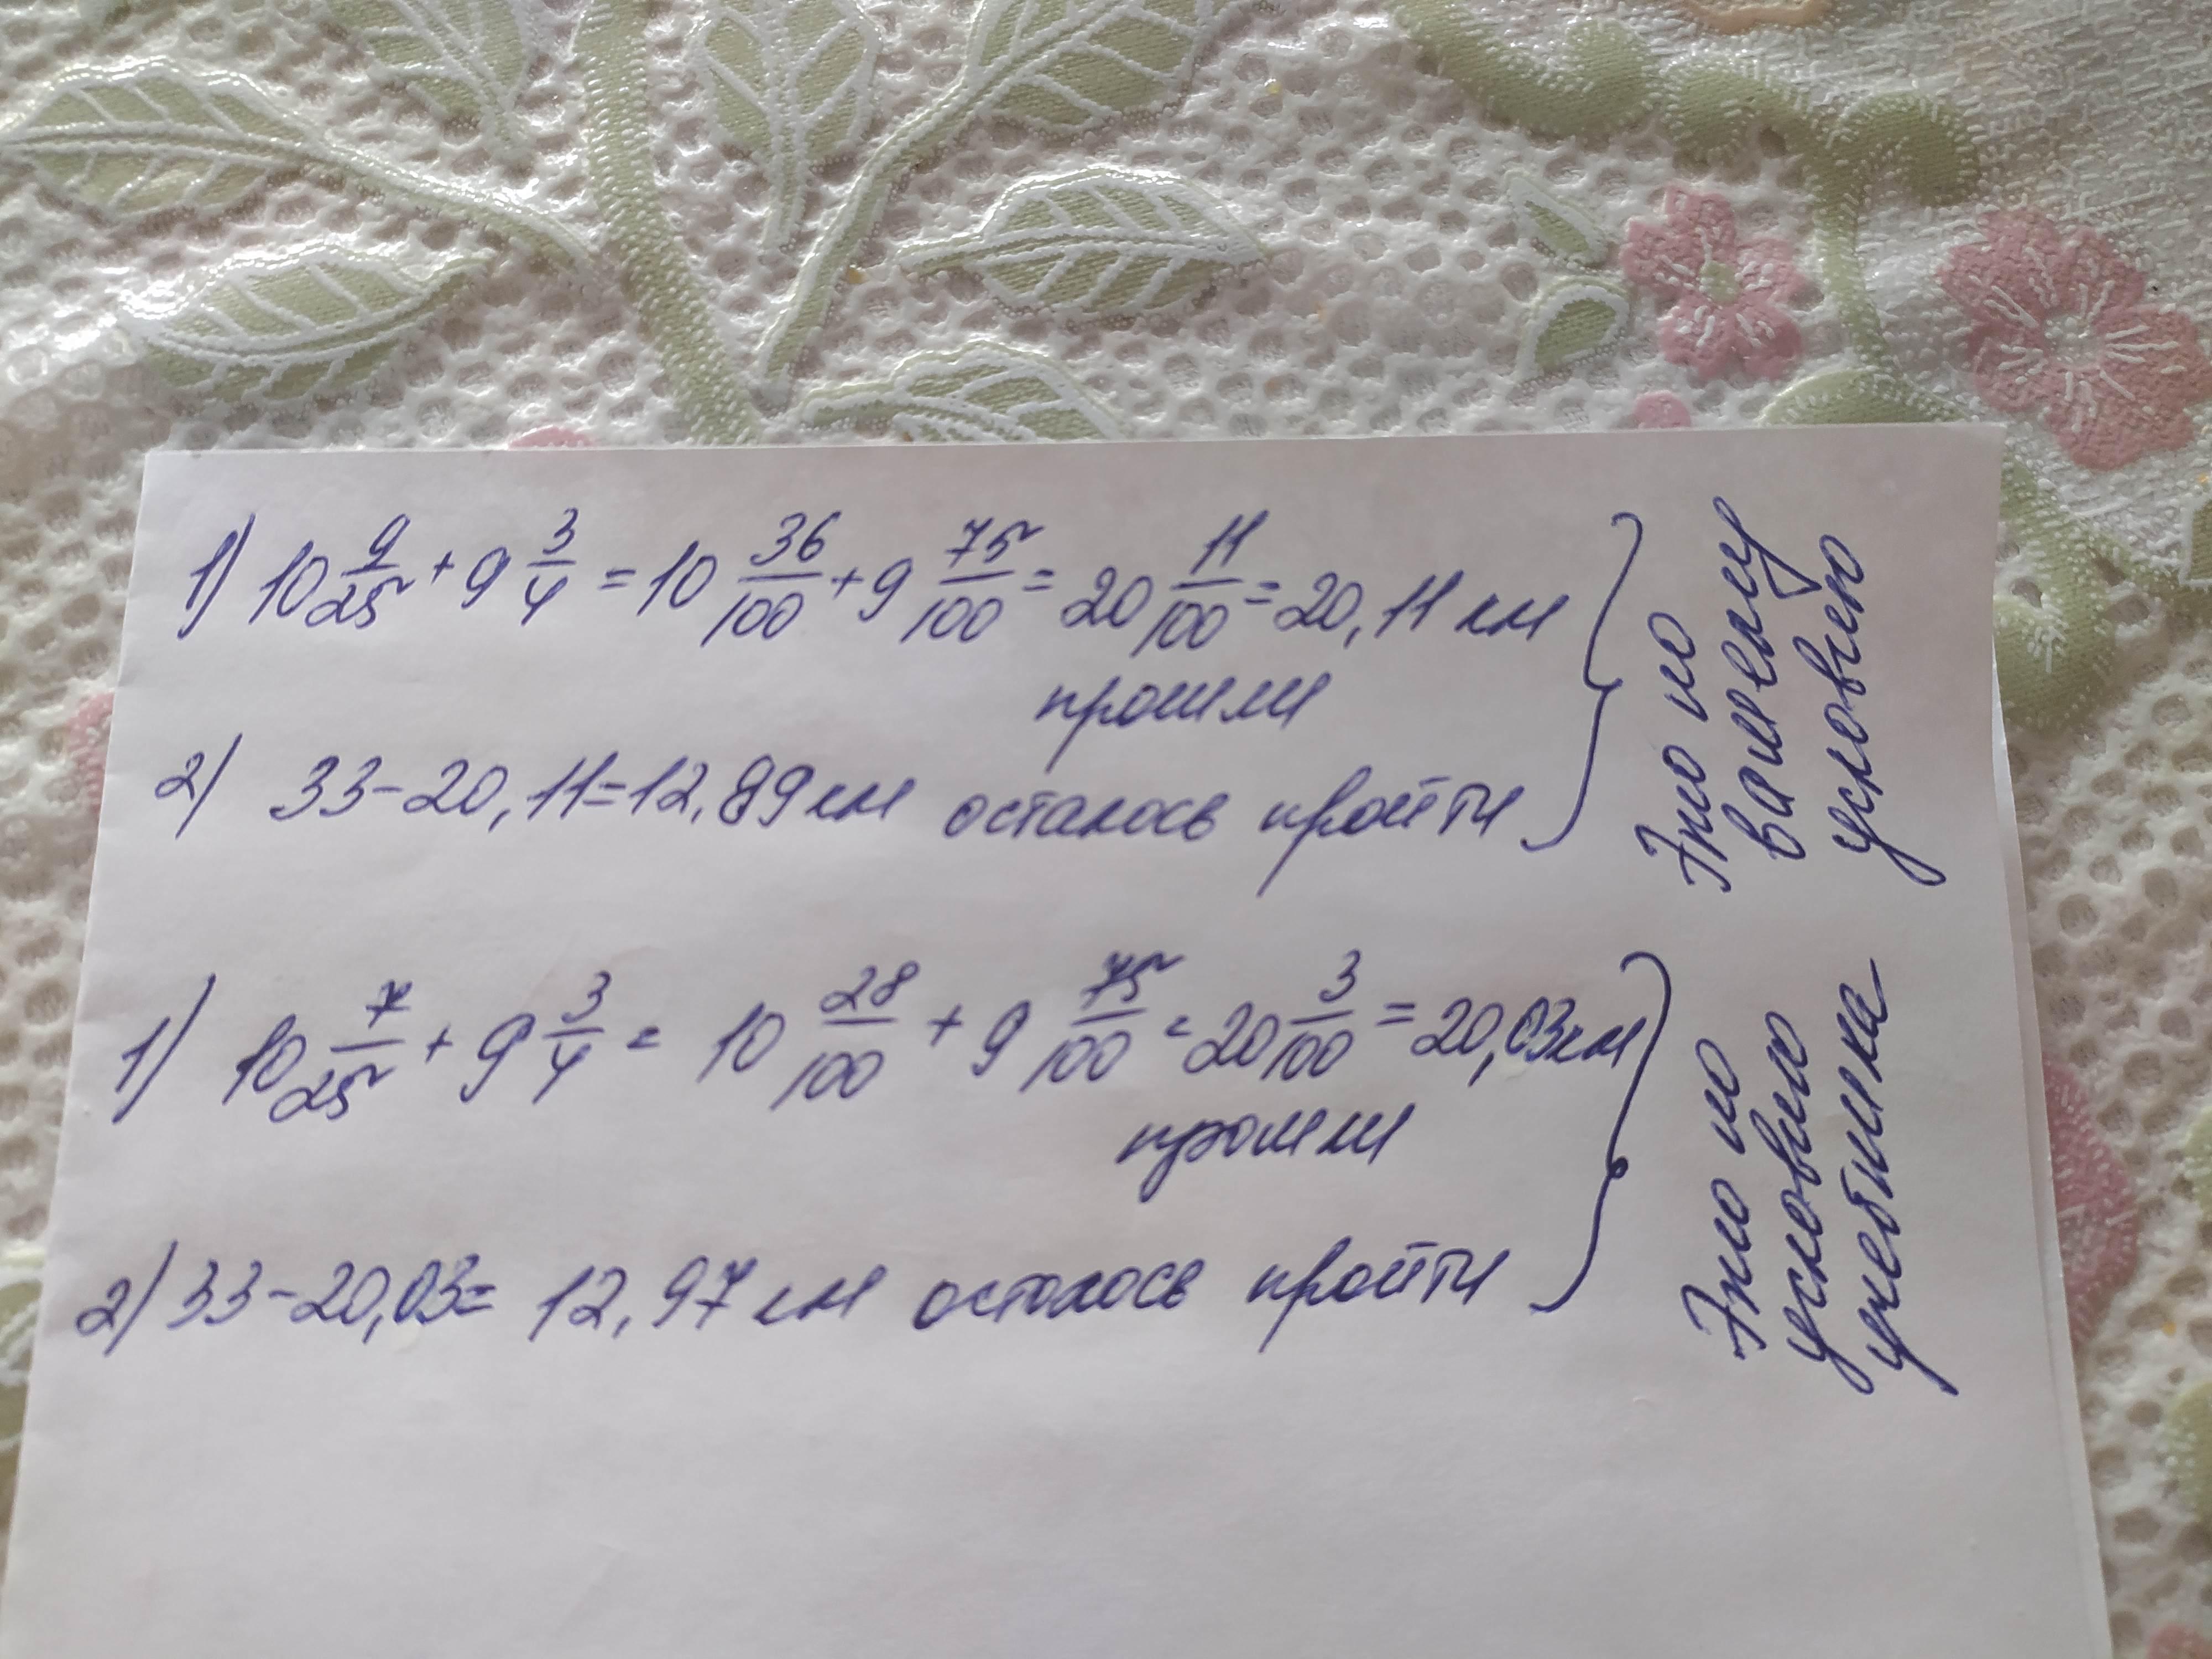 1) 10 9/25 + 9 3/4 = 10 36/100 + 9 75/100 = 20 11/100 = 20,11 км
прошли
2) 33-20,11=12,89 км осталось пройти
Это по
вашему
условию
1) 10 7/25 + 9 3/4 = 10 28/100 + 9 75/100 = 20 3/100 = 20,03 км
прошли
2) 33-20,03= 12,97 км осталось пройти
Это по
условию
учебника